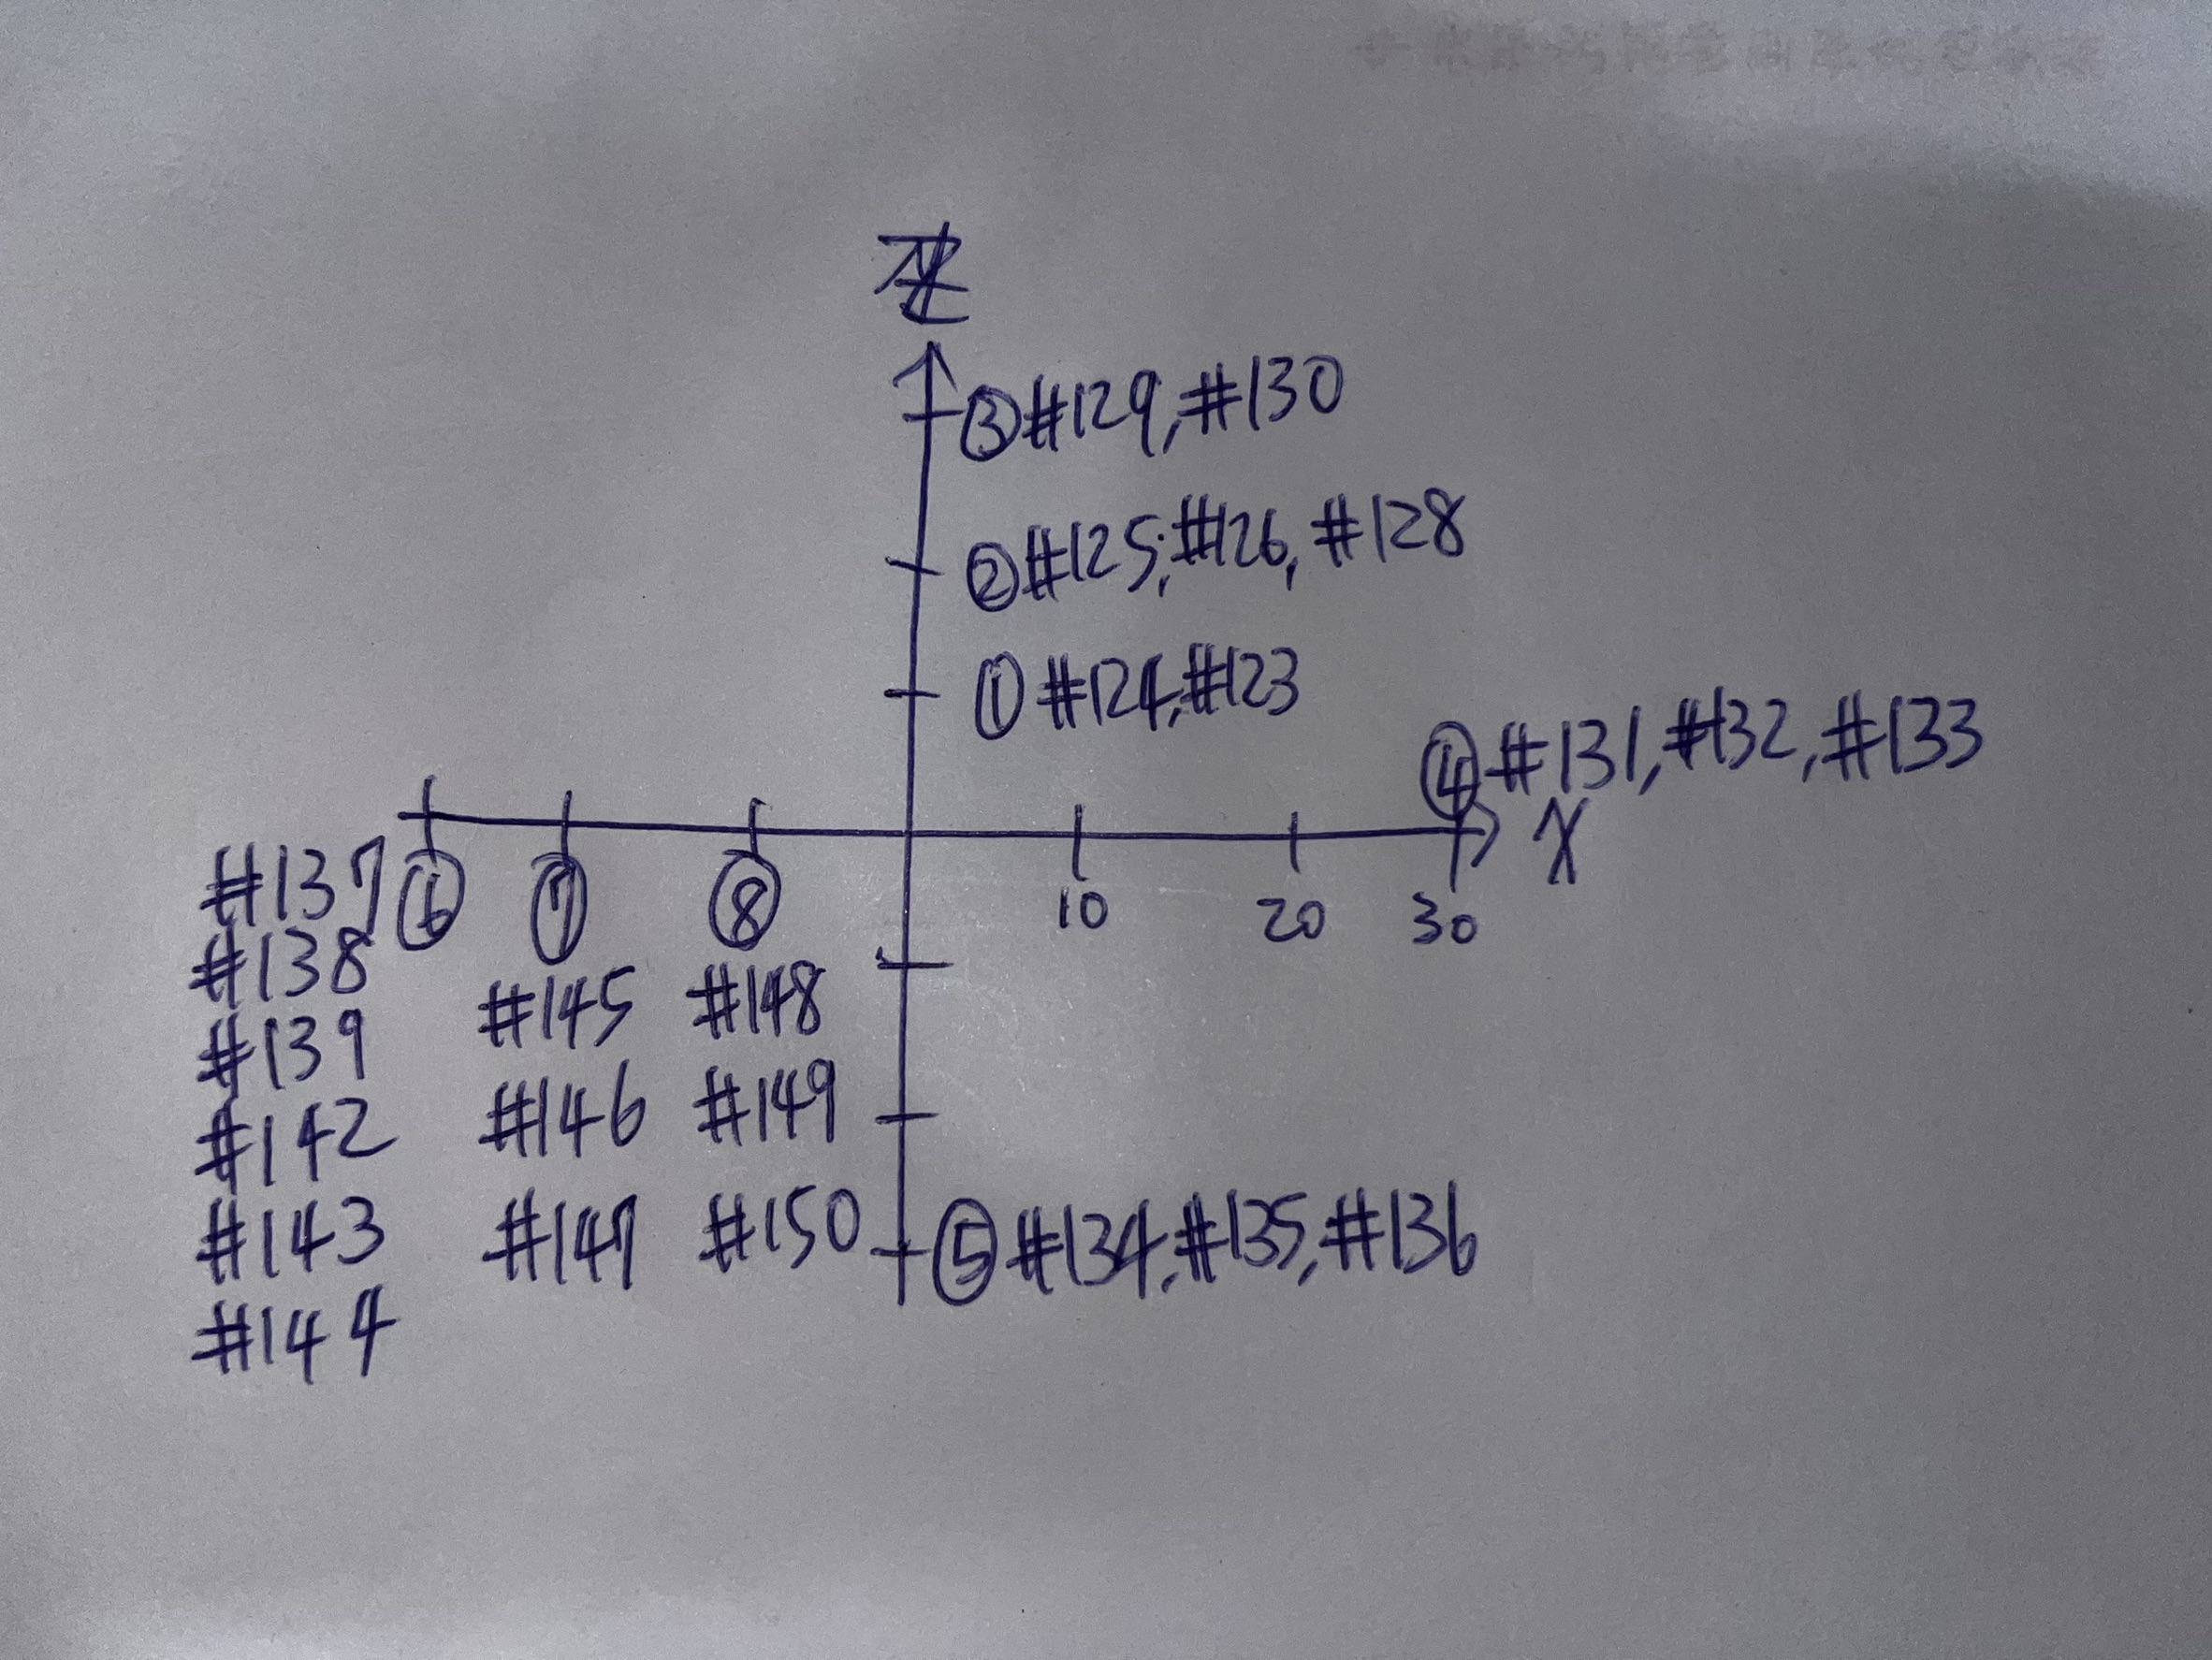 ③#129,#130
②#125,#126,#128
①#124,#123
④#131,#132,#133
X
10 20 30
⑥ ⑦ ⑧
#137
#138
#139
#142
#143
#144
#145
#146
#147
#148
#149
#150
⑤#134,#135,#136